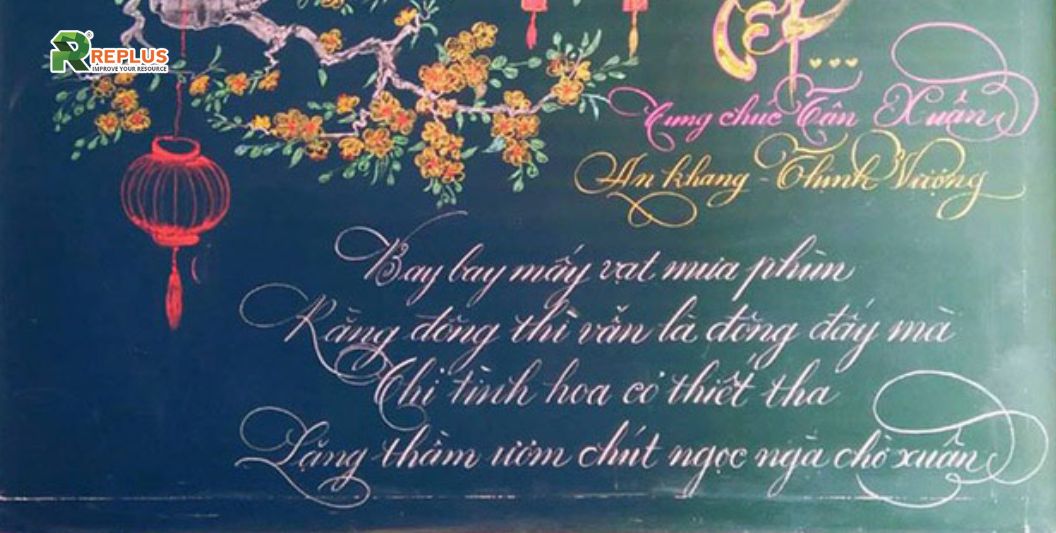 REPLUS
IMPROVE YOUR RESOURCE
Cung chúc Tân Xuân
An khang - Thịnh Vượng
Bay bay mấy vạt mưa phùn
Rằng đông thì vẫn là đông đấy mà
Chỉ tình hoa cỏ thiết tha
Lặng thầm ươm chút ngọc ngà chờ xuân